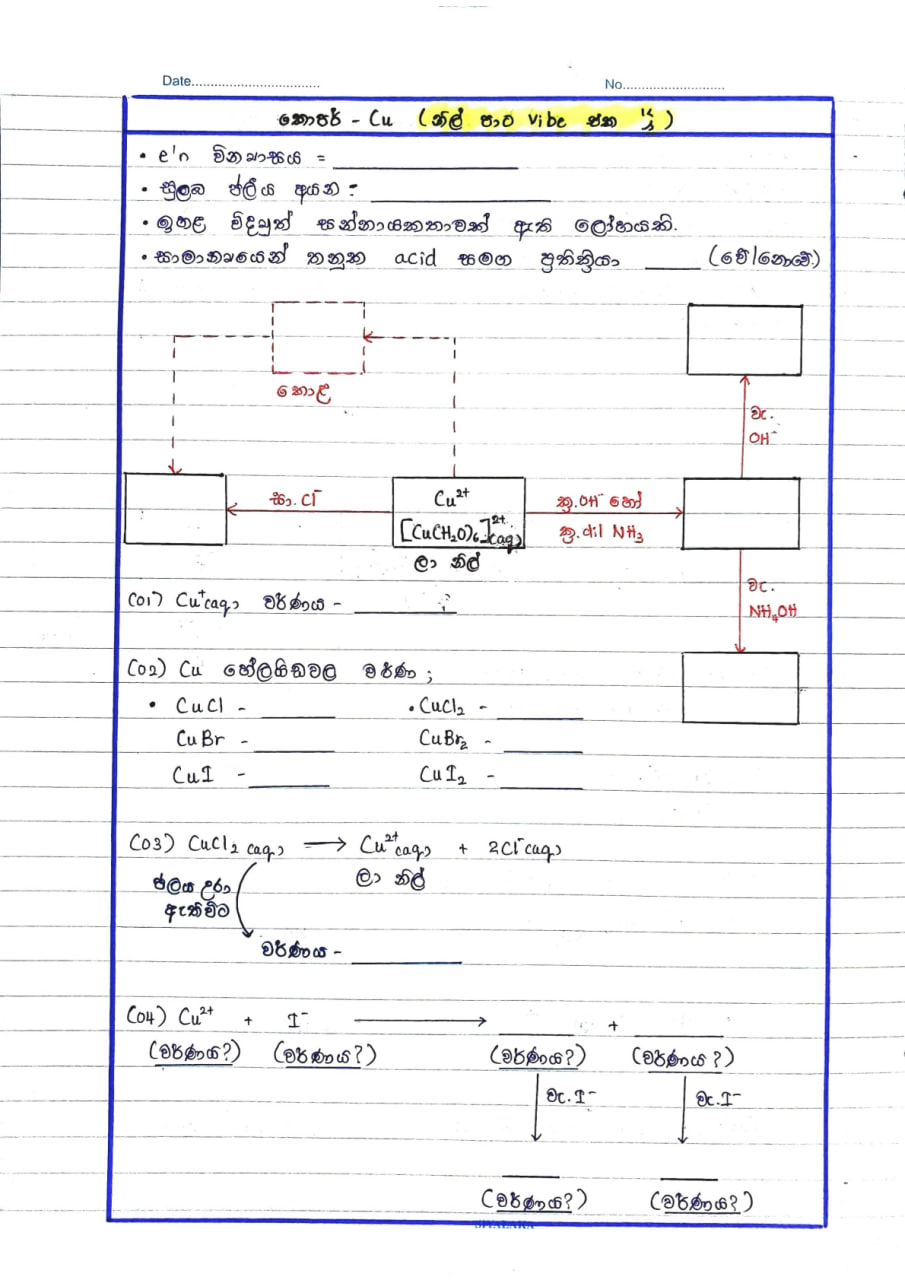 Date................................
No...........................
කොපර් - Cu (නිල් පාට Vibe එක)
• e'n වින්‍යාසය = __________
• සුලබ ජලීය අයන = __________
• ඉහළ විද්‍යුත් සන්නායකතාවක් ඇති ලෝහයකි.
• සාමාන්‍යයෙන් තනුක acid සමඟ ප්‍රතික්‍රියා ____ (වේ/නොවේ)
කොළ
වැ.
OH⁻
සා. Cl⁻
Cu²⁺
[Cu(H₂O)₆]²⁺(aq)
ලා නිල්
ක්‍ර. OH⁻ හෝ
ක්‍ර. dil NH₃
වැ.
NH₄OH
(01) Cu⁺(aq) වර්ණය - ________
(02) Cu හේලයිඩවල වර්ණ ;
• CuCl - ______ • CuCl₂ - ______
CuBr - ______ CuBr₂ - ______
CuI - ______ CuI₂ - ______
(03) CuCl₂(aq) → Cu²⁺(aq) + 2Cl⁻(aq)
ලා නිල්
ජලය උරා
ඇතිවිට
වර්ණය - ________
(04) Cu²⁺ + I⁻ → ______ + ______
(වර්ණය?) (වර්ණය?) (වර්ණය?) (වර්ණය?)
වැ. I⁻ වැ. I⁻
(වර්ණය?) (වර්ණය?)